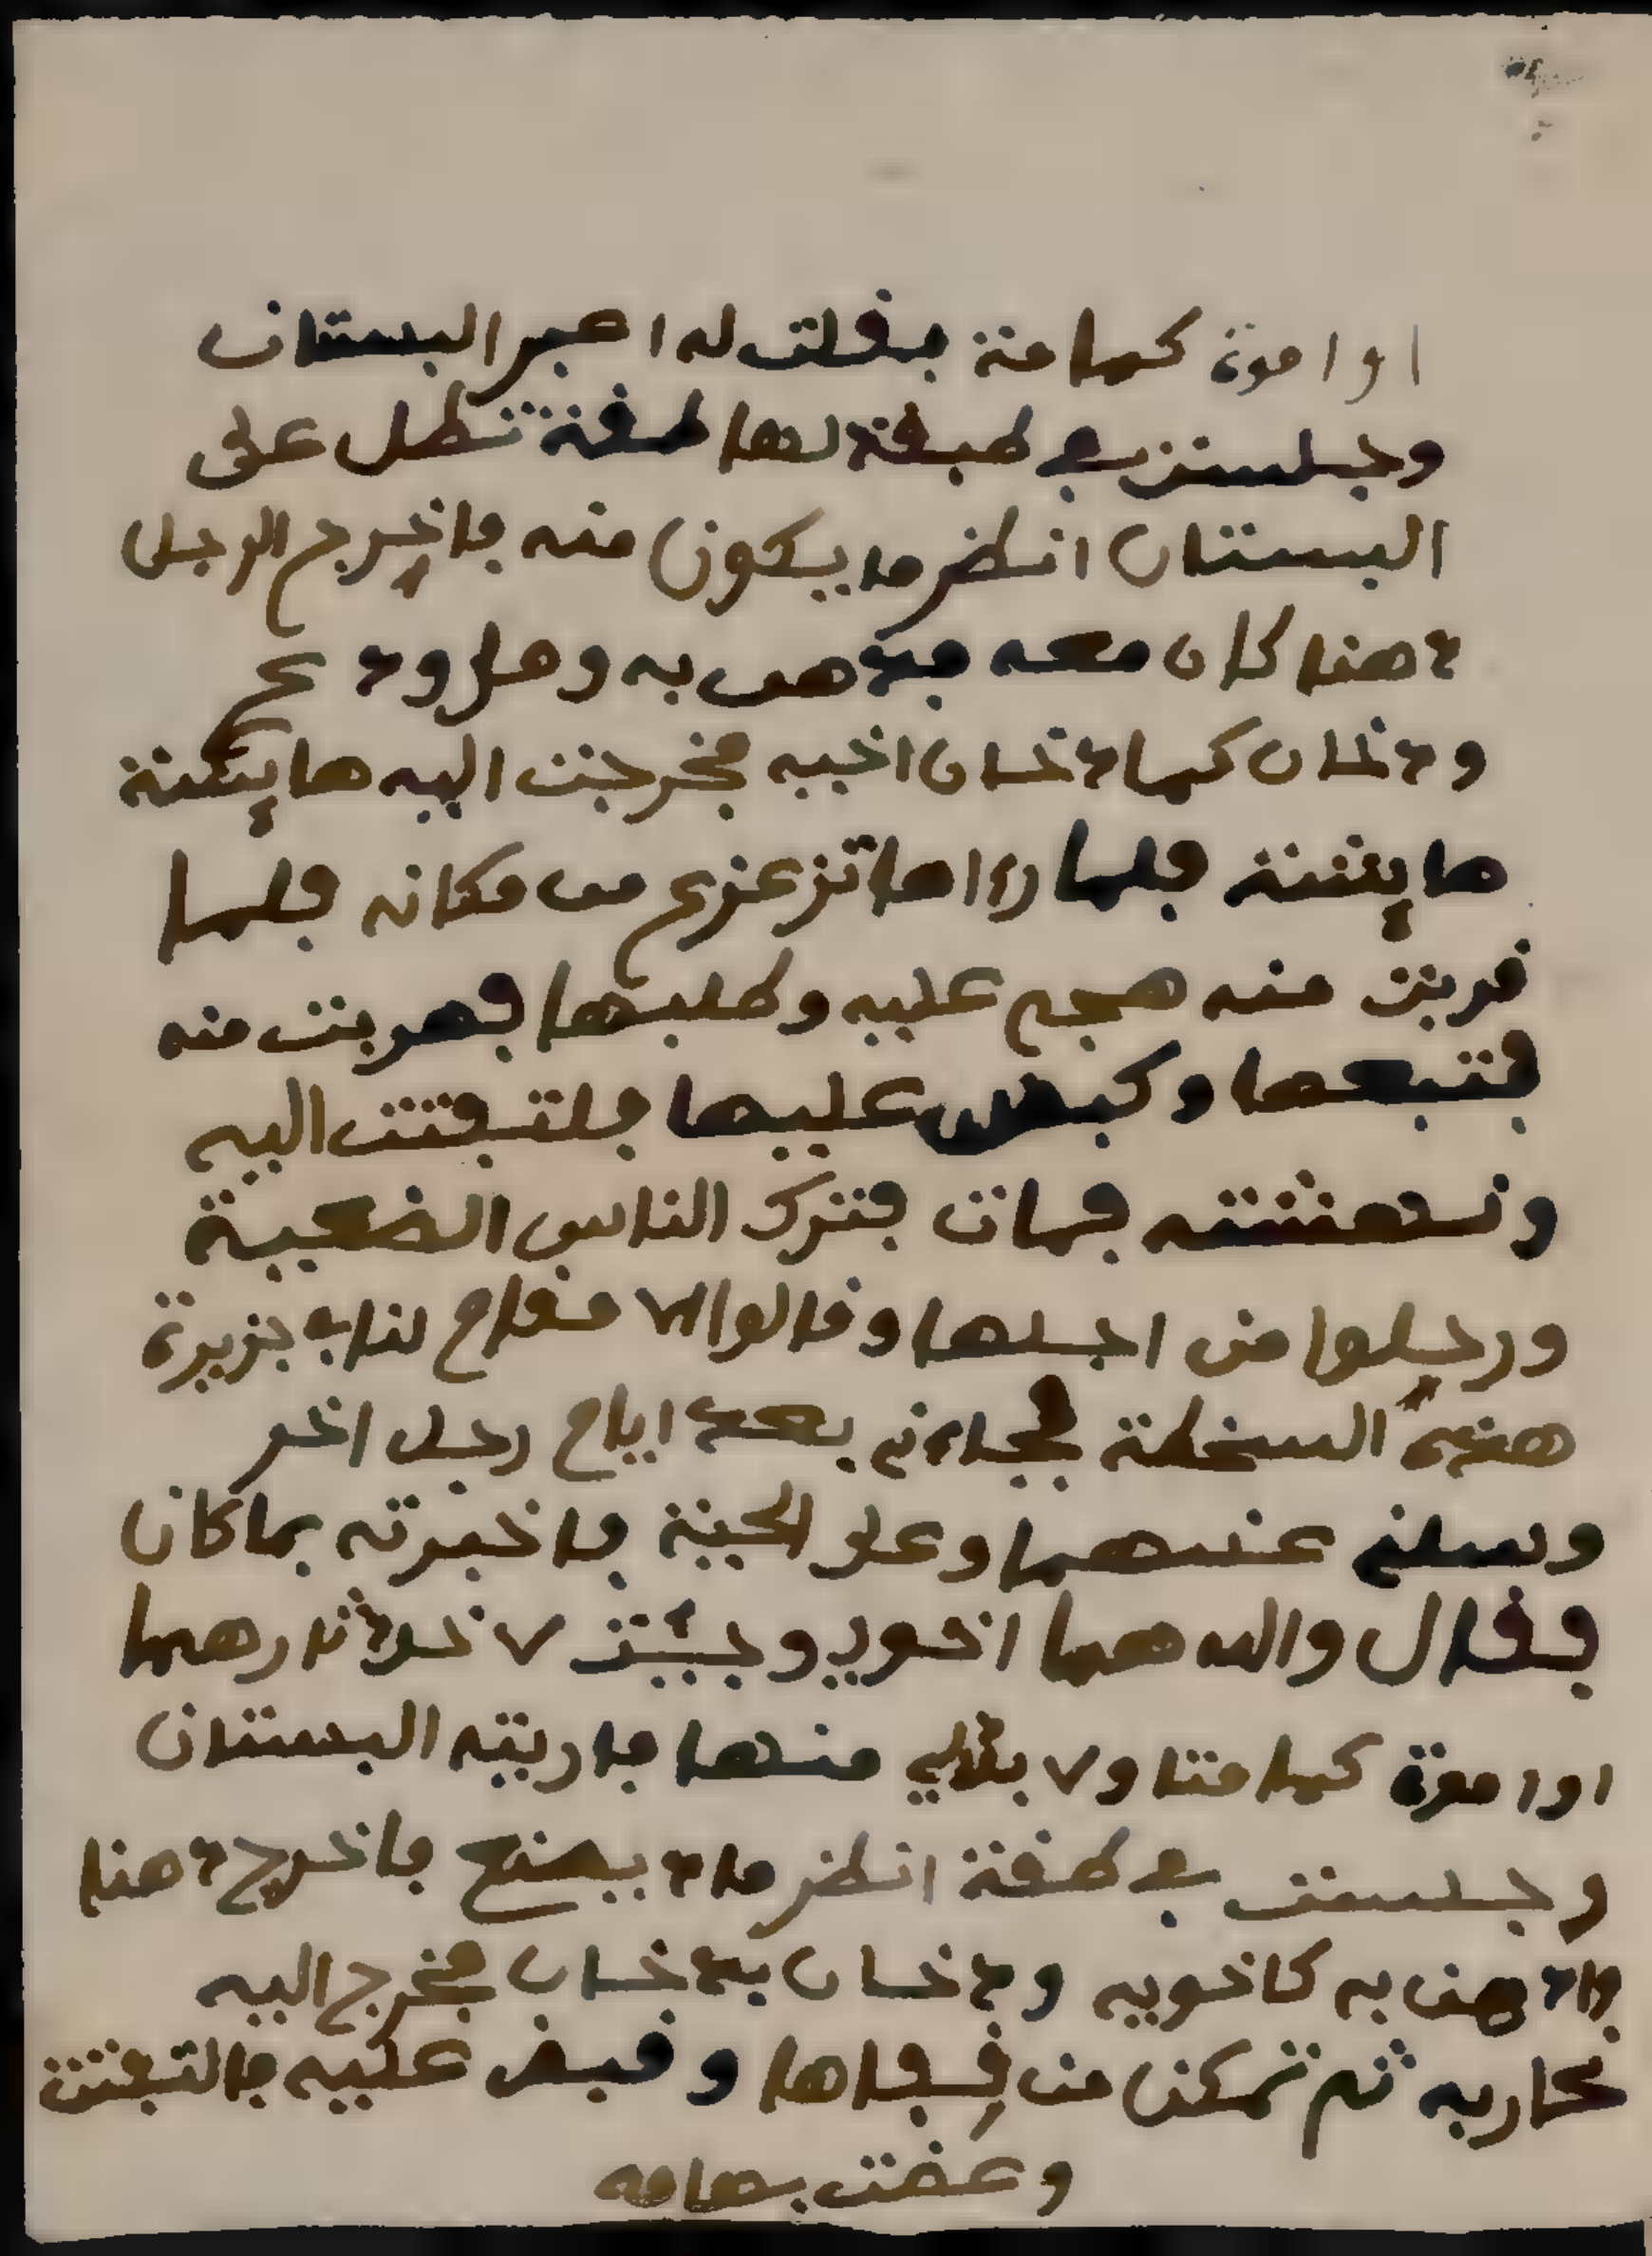 اوا موة كما متة بفلت له اهبر البستان
وجلست في طبفة لها طفة تطل على
البستان انظر ما يكون منه باخرج الرجل
دهنا كان معه بدهن به وهل ود
ودخان كما دخان اخيه فخرجت اليه هايشة
هايشة فلما رءاها تزعزع من مكانه فلما
فربت منه هجم عليه وطلبها بهربت منه
فتبعها وكبض عليها فلتبتت اليه
ونهشته فمات فترك الناس الضعية
ورحلوا من اجلها وفالوا لا مفام لنا في جزيرة
هذه السخطة فجاءني بعد ايام رجل اخر
وسلني عنهما وعلى الحية فاخبرته بما كان
بفال والله هما اخوي وجئت لاخد ثارهما
اوا موة كما متا ولا بدلي منها فاريته البستان
وجلست في طفة انظر ماد يصنع فاخرج دهنا
فادهن به كاخويه ودخان بدخان فخرج اليه
فحاربه ثم تمكن من فباها وفبض عليه فالتبتت
وعضت بهامه